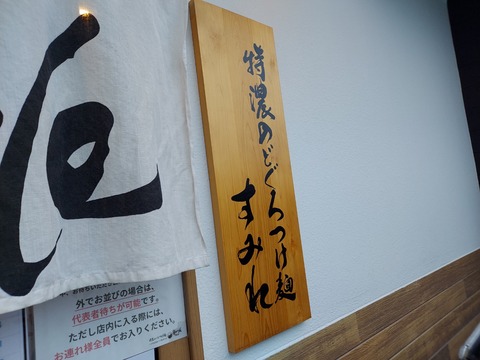 特濃のどぐろつけ麺
すみれ
外でお並びの場合は、
代表者待ちが可能です。
ただし店内に入る際には、
お連れ様全員でお入りください。